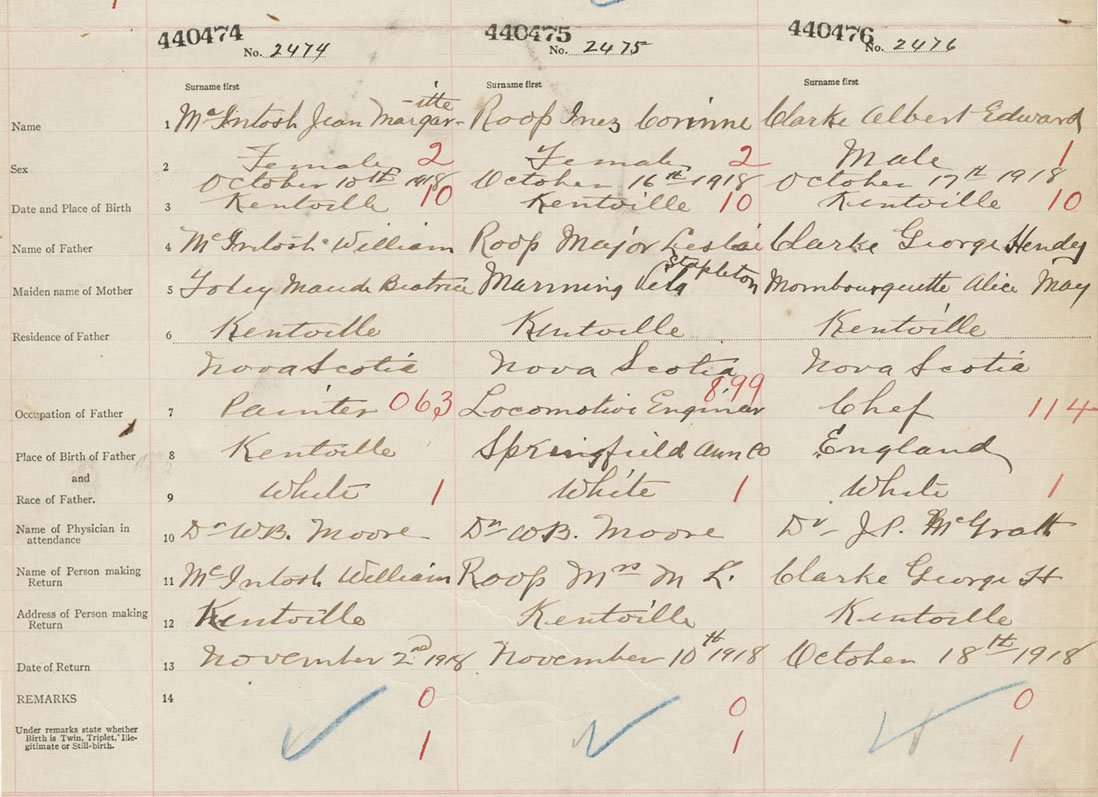 440474 440475 440476
No. 2474 No. 2475 No. 2476
Surname first Surname first Surname first
-itte
Name 1 McIntosh Jean Margar- Roop Inez Corinne Clarke Albert Edward
Sex 2 Female 2 Female 2 Male 1
October 10th 1918 October 16th 1918 October 17th 1918
Date and Place of Birth 3 Kentville 10 Kentville 10 Kentville 10
Name of Father 4 McIntosh William Roop Major Leslie Clarke George Hendey
Stapleton
Maiden name of Mother 5 Foley Maude Beatrice Manning Veta Mombourquette Alice May
Residence of Father 6 Kentville Kentville Kentville
Nova Scotia Nova Scotia Nova Scotia
Occupation of Father 7 Painter 063 Locomotive Engineer 899 Chef 114
Place of Birth of Father 8 Kentville Springfield Ann Co England
and
Race of Father. 9 White 1 White 1 White 1
Name of Physician in
attendance 10 Dr W.B. Moore Dr W.B. Moore Dr J.P. McGrath
Name of Person making
Return 11 McIntosh William Roop Mrs M L. Clarke George H
Address of Person making
Return 12 Kentville Kentville Kentville
Date of Return 13 November 2nd 1918 November 10th 1918 October 18th 1918
REMARKS 14 0 0 0
Under remarks state whether
Birth is Twin, Triplet, Ille-
gitimate or Still-birth. 1 1 1